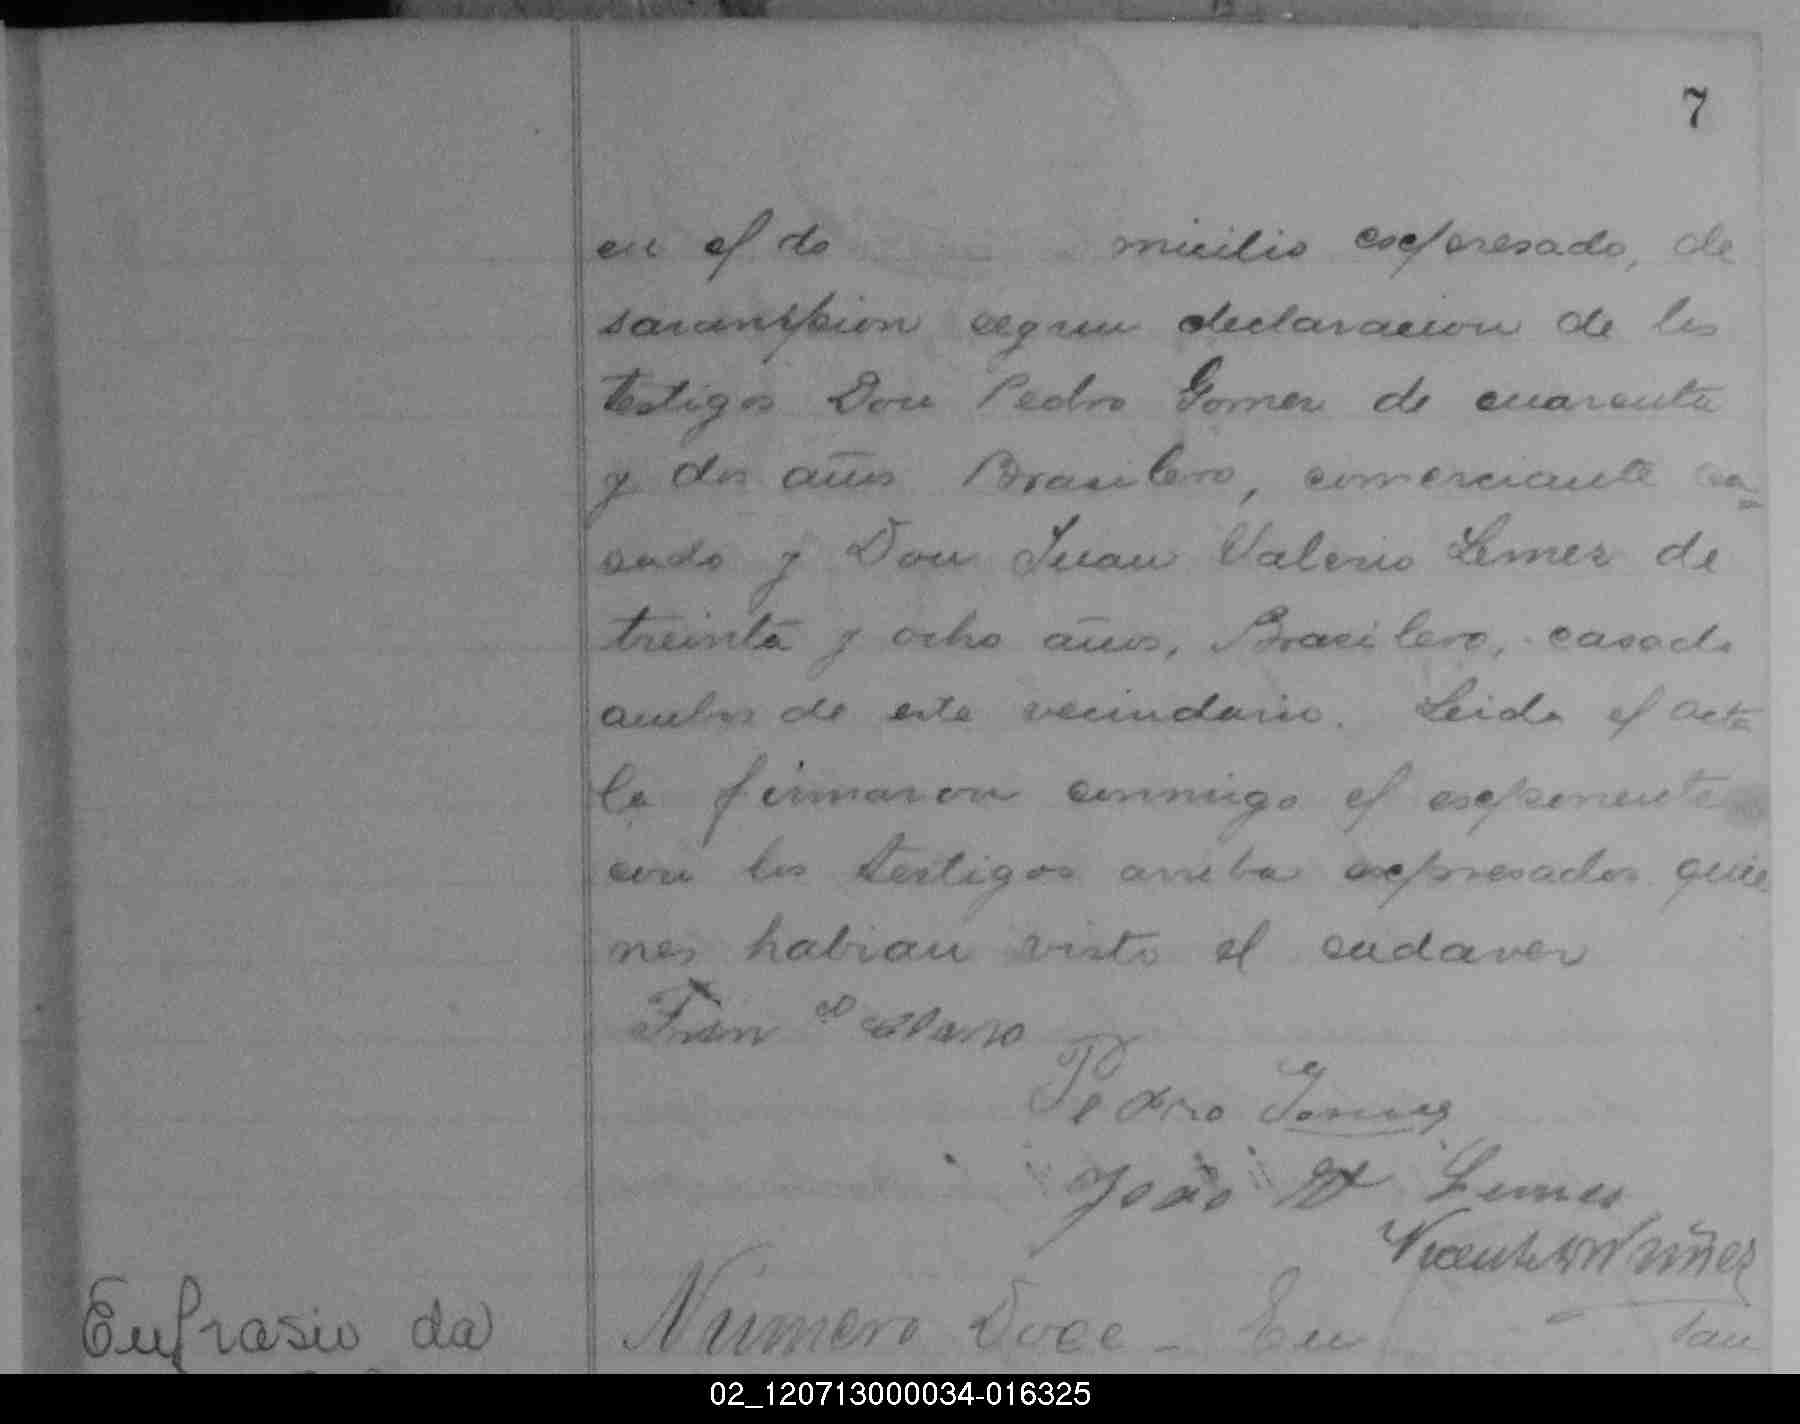 7
en el do micilio espresado, de
sarampion segun declaracion de los
testigos Don Pedro Gomez de cuarenta
y dos años Brasilero, comerciante ca=
sado y Don Juan Valerio Lemez de
treinta y ocho años, Brasilero, casado
ambos de este vecindario. Leida el acta
la firmaron conmigo el esponente
con los testigos arriba espresados quie
nes habian visto el cadaver
Fran co
Pedro Gomes
João V Lemes
Vicente Nuñez
Eufrasio da
Numero Doce - En San
02_120713000034-016325